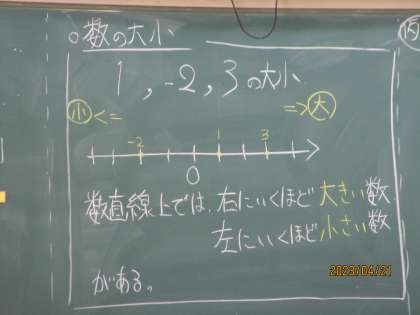 ○数の大小
1, -2, 3の大小
小 <= => 大
-2 1 3
0
数直線上では、右にいくほど大きい数
左にいくほど小さい数
がある。
2023/04/21